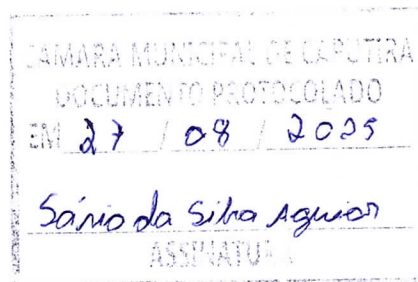 CÂMARA MUNICIPAL DE CAPUTIRA
DOCUMENTO PROTOCOLADO
EM 27 / 08 / 2025
Sánio da Silva Aguiar
ASSINATURA